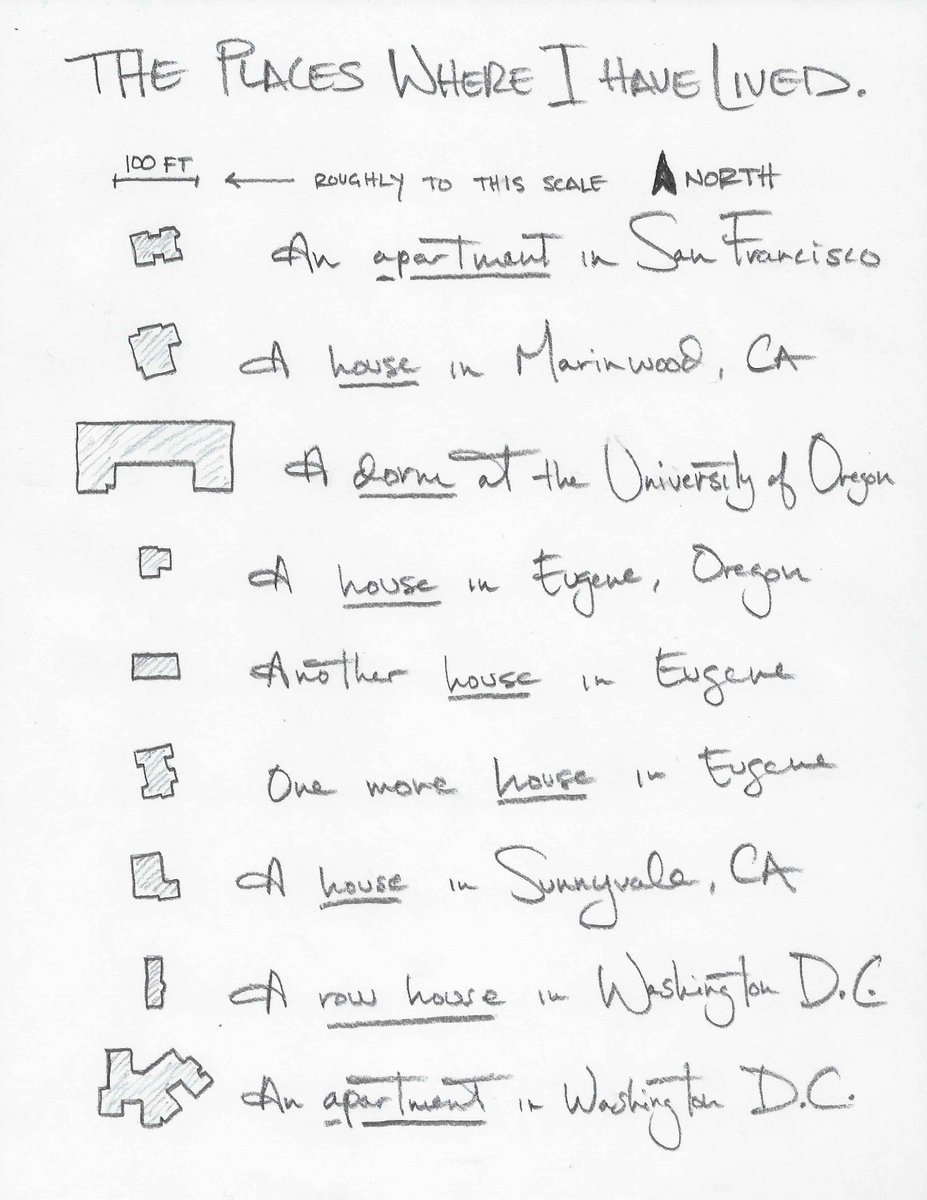 THE PLACES WHERE I HAVE LIVED.
100 FT ROUGHLY TO THIS SCALE NORTH
An apartment in San Francisco
A house in Marinwood, CA
A dorm at the University of Oregon
A house in Eugene, Oregon
Another house in Eugene
One more house in Eugene
A house in Sunnyvale, CA
A row house in Washington D.C.
An apartment in Washington D.C.